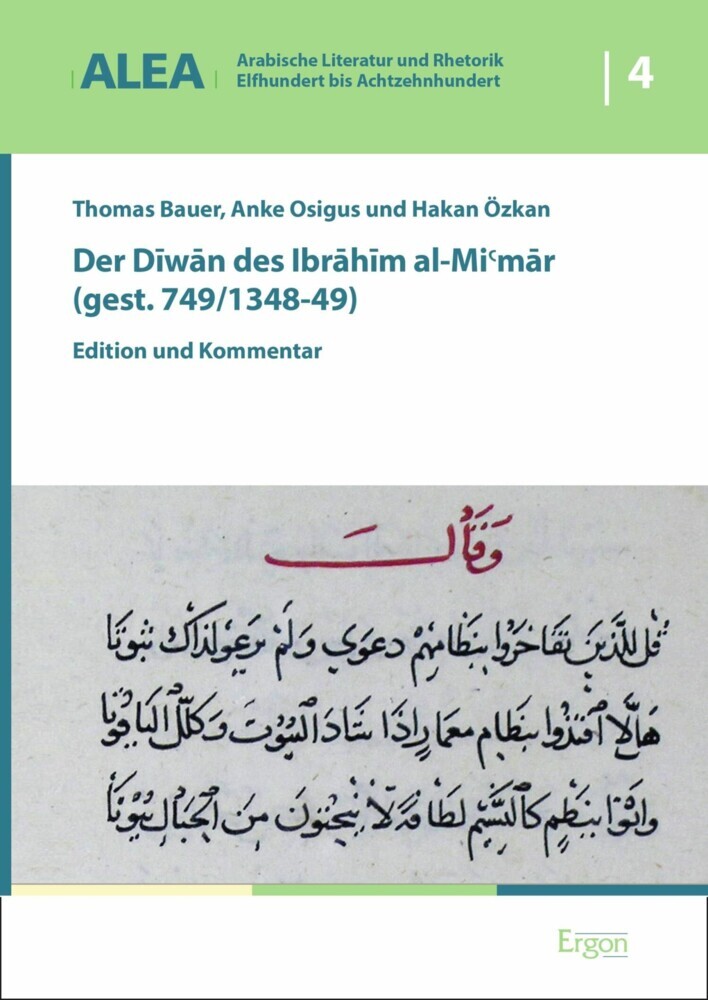 ALEA
Arabische Literatur und Rhetorik
Elfhundert bis Achtzehnhundert
4
Thomas Bauer, Anke Osigus und Hakan Özkan
Der Dīwān des Ibrāhīm al-Miʿmār
(gest. 749/1348-49)
Edition und Kommentar
وَقَالَ
قُل للَّذينَ تفَاخَرُوا بنظامِهِمْ دعوَي وَلَمْ يرعَوا لذاكَ ثبوتَا
هَلَّا اقتدُوا بنظام معمارٍ اذَا شادَ البُيُوتَ وَكلّل اليَاقوتا
وَاتَوْا بنظمٍ كالنَّسِيْمِ لطَافةً لَا يَنحِتونَ مِنَ الجبَالِ بُيُوتَا
Ergon